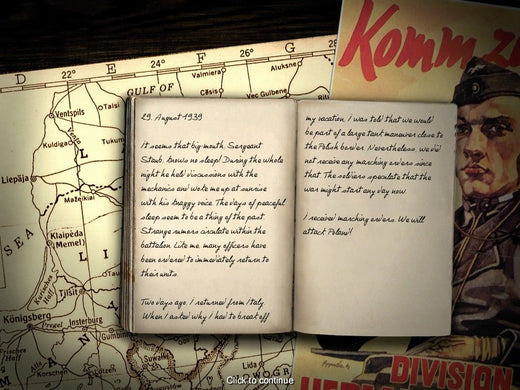 D
E
F
G
22°
24°
26°
28°
GULF OF
Valmiera
Aluksne
Cēsis
Vec Gulbene
Ventspils
Talsi
Kuldiga
Venta
Tukum
L
Liepāja
Mažeikiai
SEA
Klaipėda
(Memel)
L
I
Kurisches
Haff
Tilsit
Königsberg
Pregel
Insterburg
Suwałki
Lida
W.GR.
Komm zu
DIVISION
29. August 1939
It seems that big mouth, Sergeant
Staub, knows no sleep! During the whole
night he held discussions with the
mechanics and woke me up at sunrise
with his braggy voice. The days of peaceful
sleep seem to be a thing of the past.
Strange rumors circulate within the
battalion. Like me, many officers have
been ordered to immediately return to
their units.
Two days ago, I returned from Italy.
When I asked why I had to break off
my vacation, I was told that we would
be part of a large tank maneuver close to
the Polish border. Nevertheless, we did
not receive any marching orders since
that. The soldiers speculate that the
war might start any day now.
I received marching orders. We will
attack Poland!
Click to continue